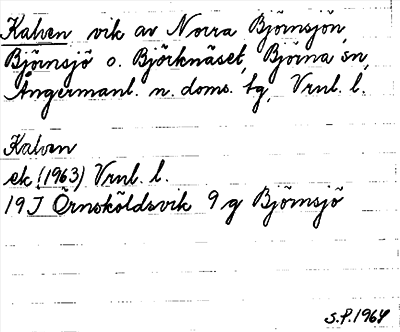 Kalven vik av Norra Björnsjön,
Björnsjö o. Björknäset, Björna sn,
Ångermanl. n. doms. tg, Vrnl. l.
Kalven
ek (1963) Vrnl. l.
19 J Örnsköldsvik 9 g Björnsjö
S.P. 1964